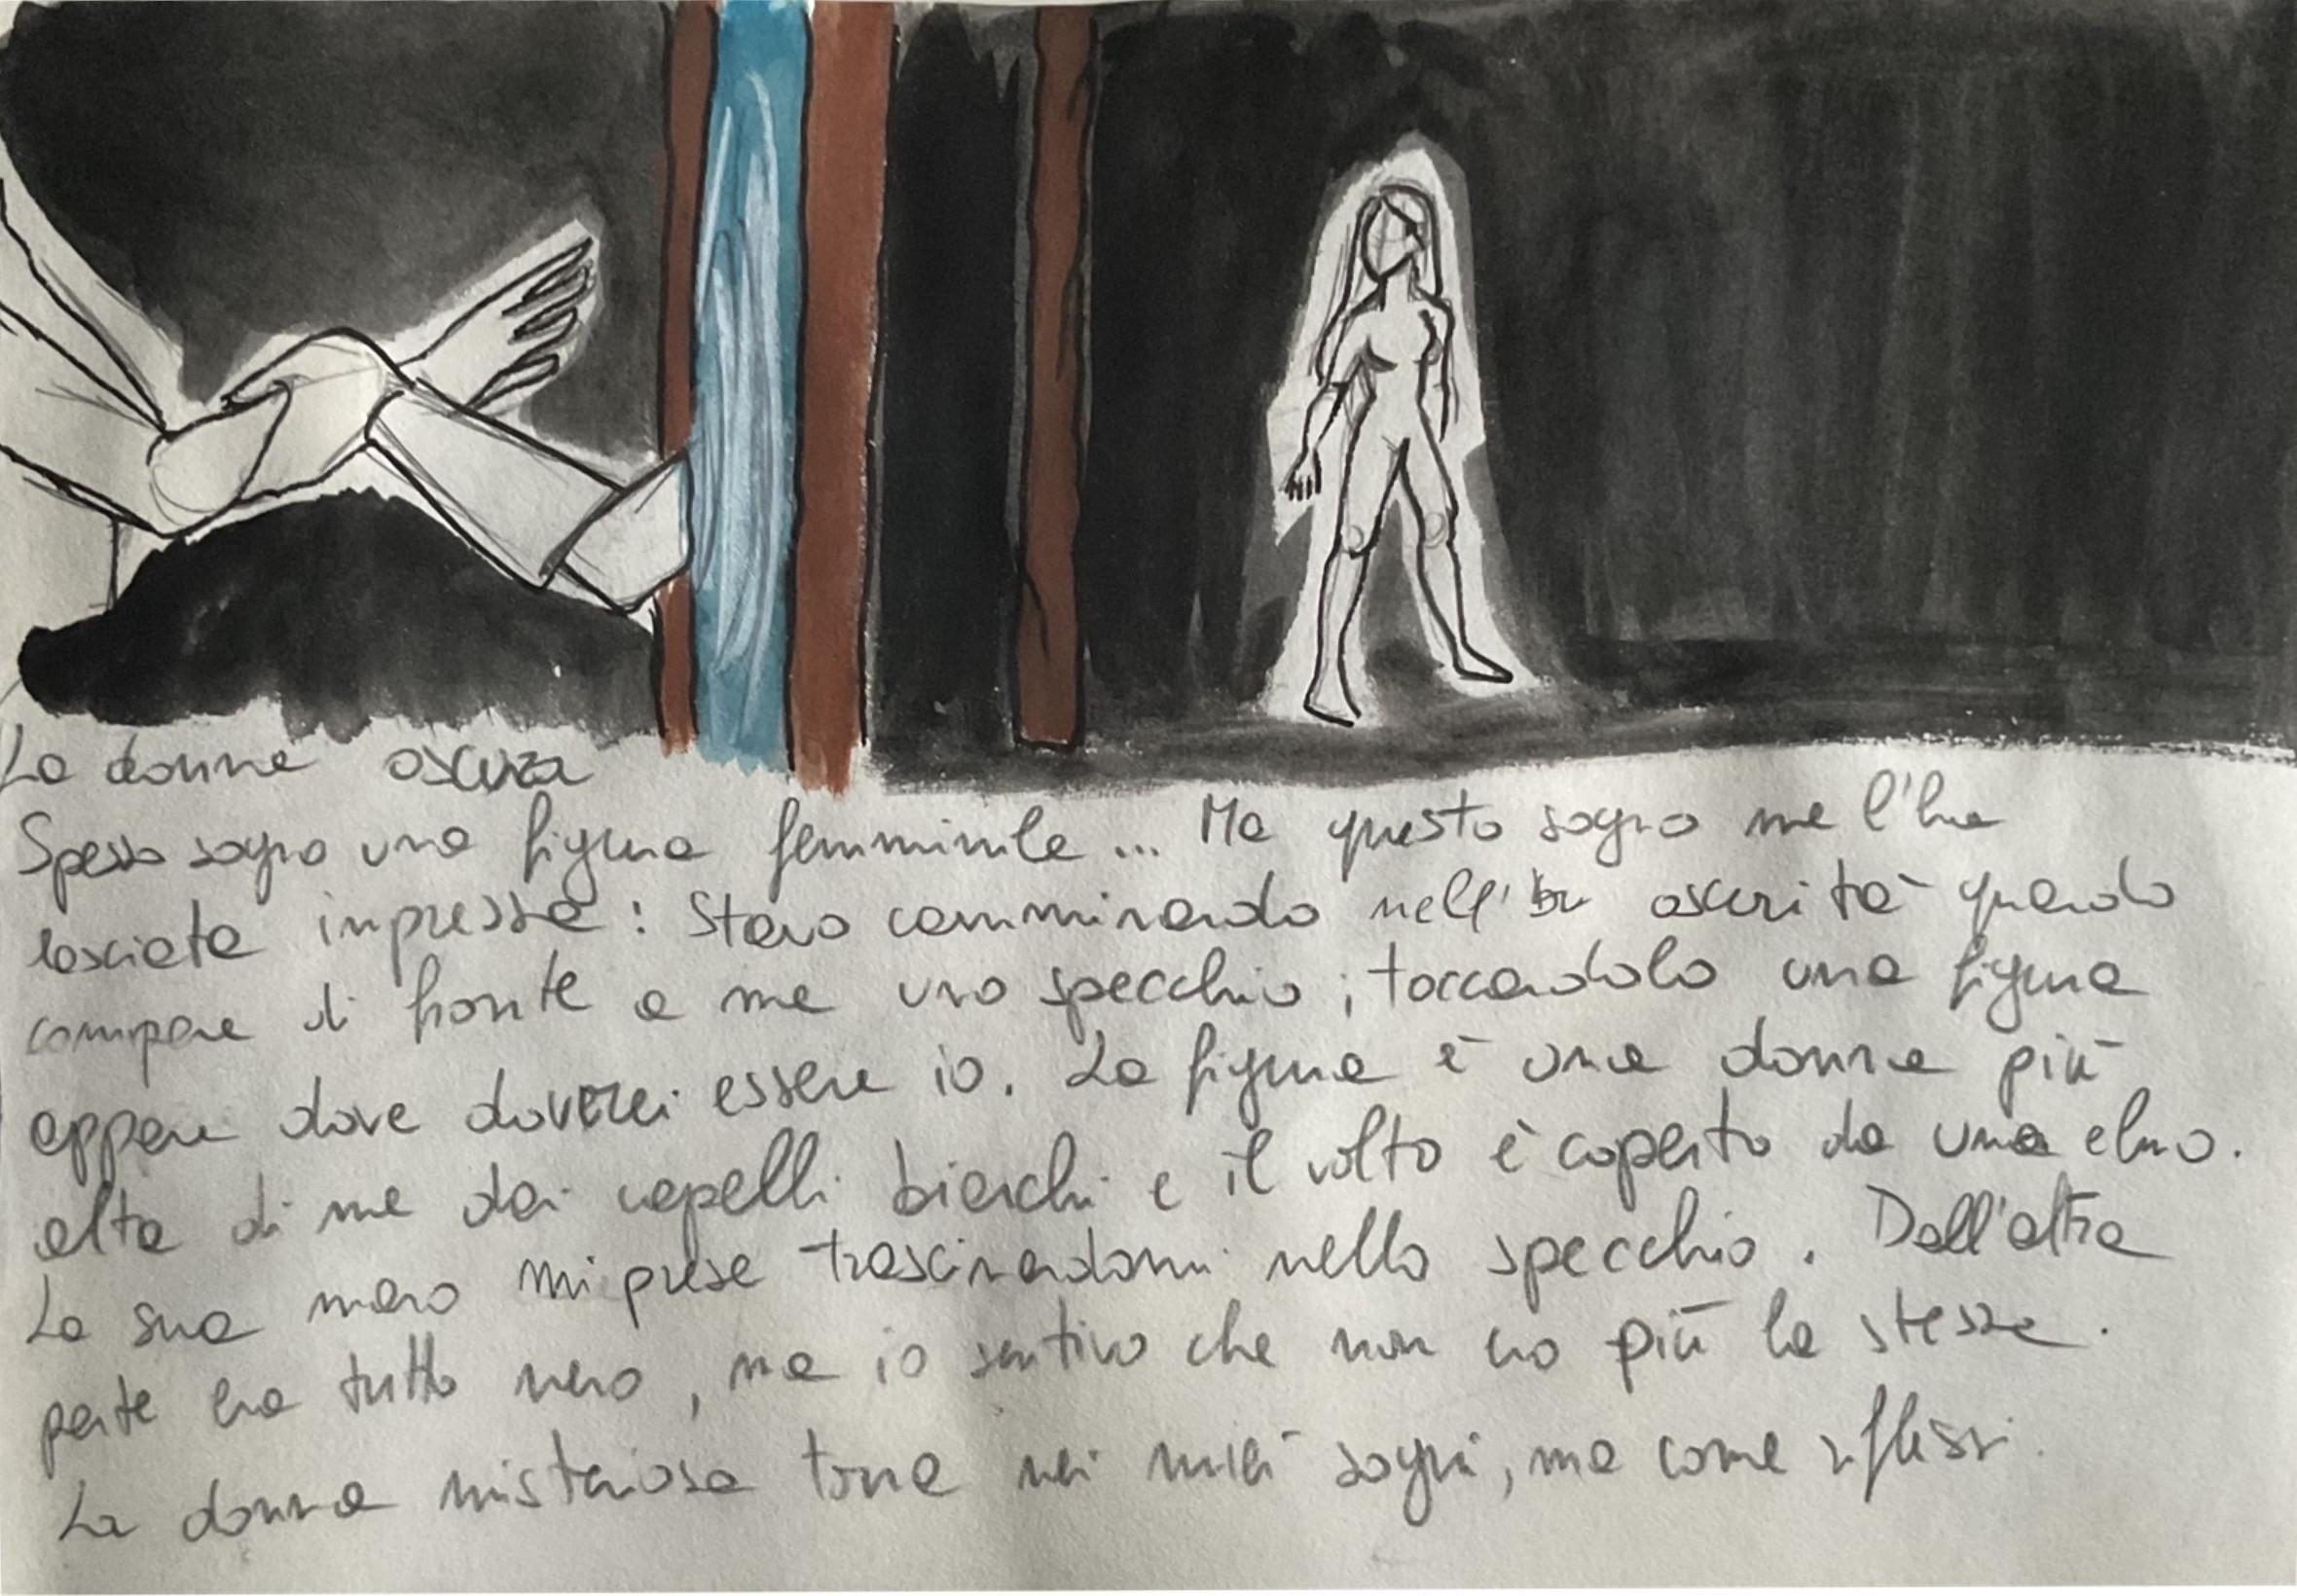 La donna oscura
Spesso sogno una figura femminile... Ma questo sogno me l'ha
lasciata impressa: Stavo camminando nell' oscurità quando
compare di fronte a me uno specchio; toccandolo una figura
appare dove doverei essere io. La figura è una donna più
alta di me dai capelli bianchi e il volto è coperto da una elmo.
La sua mano mi prese trascinandomi nello specchio. Dall'altra
parte era tutto nero, ma io sentivo che non ero più la stessa.
La donna misteriosa torna nei miei sogni, ma come riflessi.